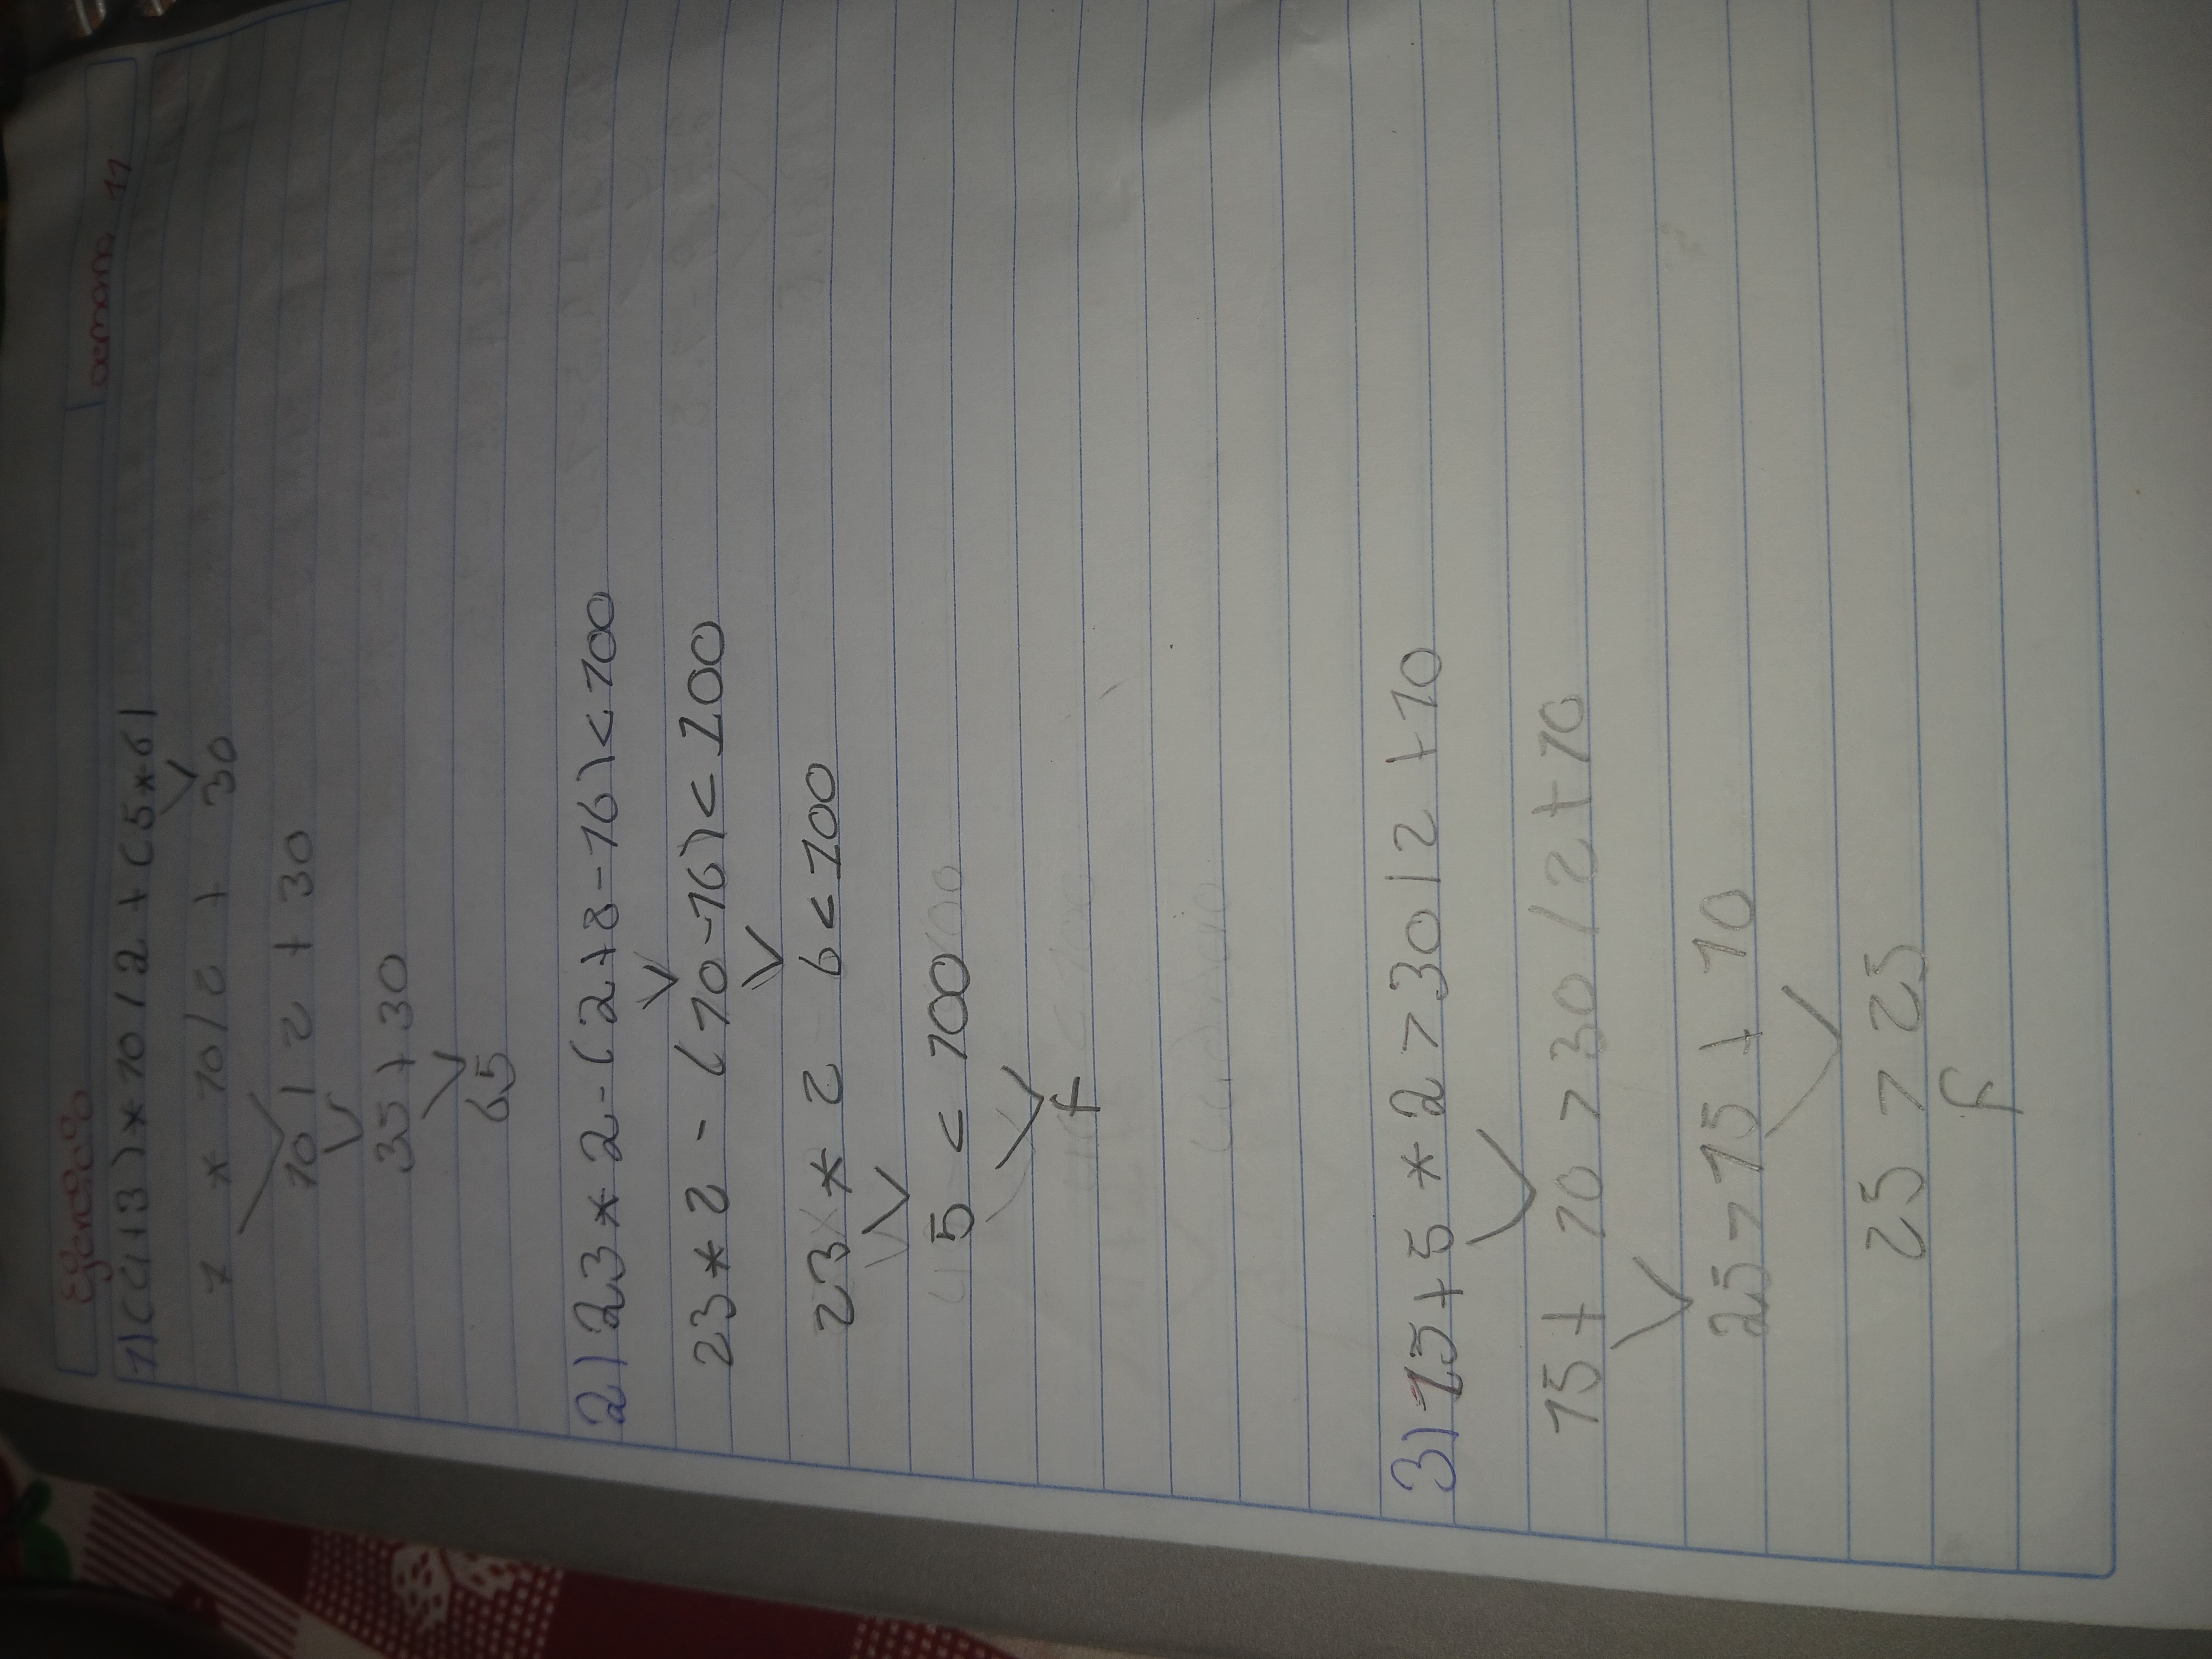 semana 11
Ejercicio
1) (4+3) * 10 / 2 + (5 * 6)
7 * 10 / 2 + 30
70 / 2 + 30
35 + 30
65
2) 23 * 2 - (2+8-16) < 100
23 * 2 - (10-16) < 100
23 * 2 6 < 100
5 < 100
f
3) 15 + 5 * 2 > 30 / 2 + 10
15 + 10 > 30 / 2 + 10
25 > 15 + 10
25 > 25
F